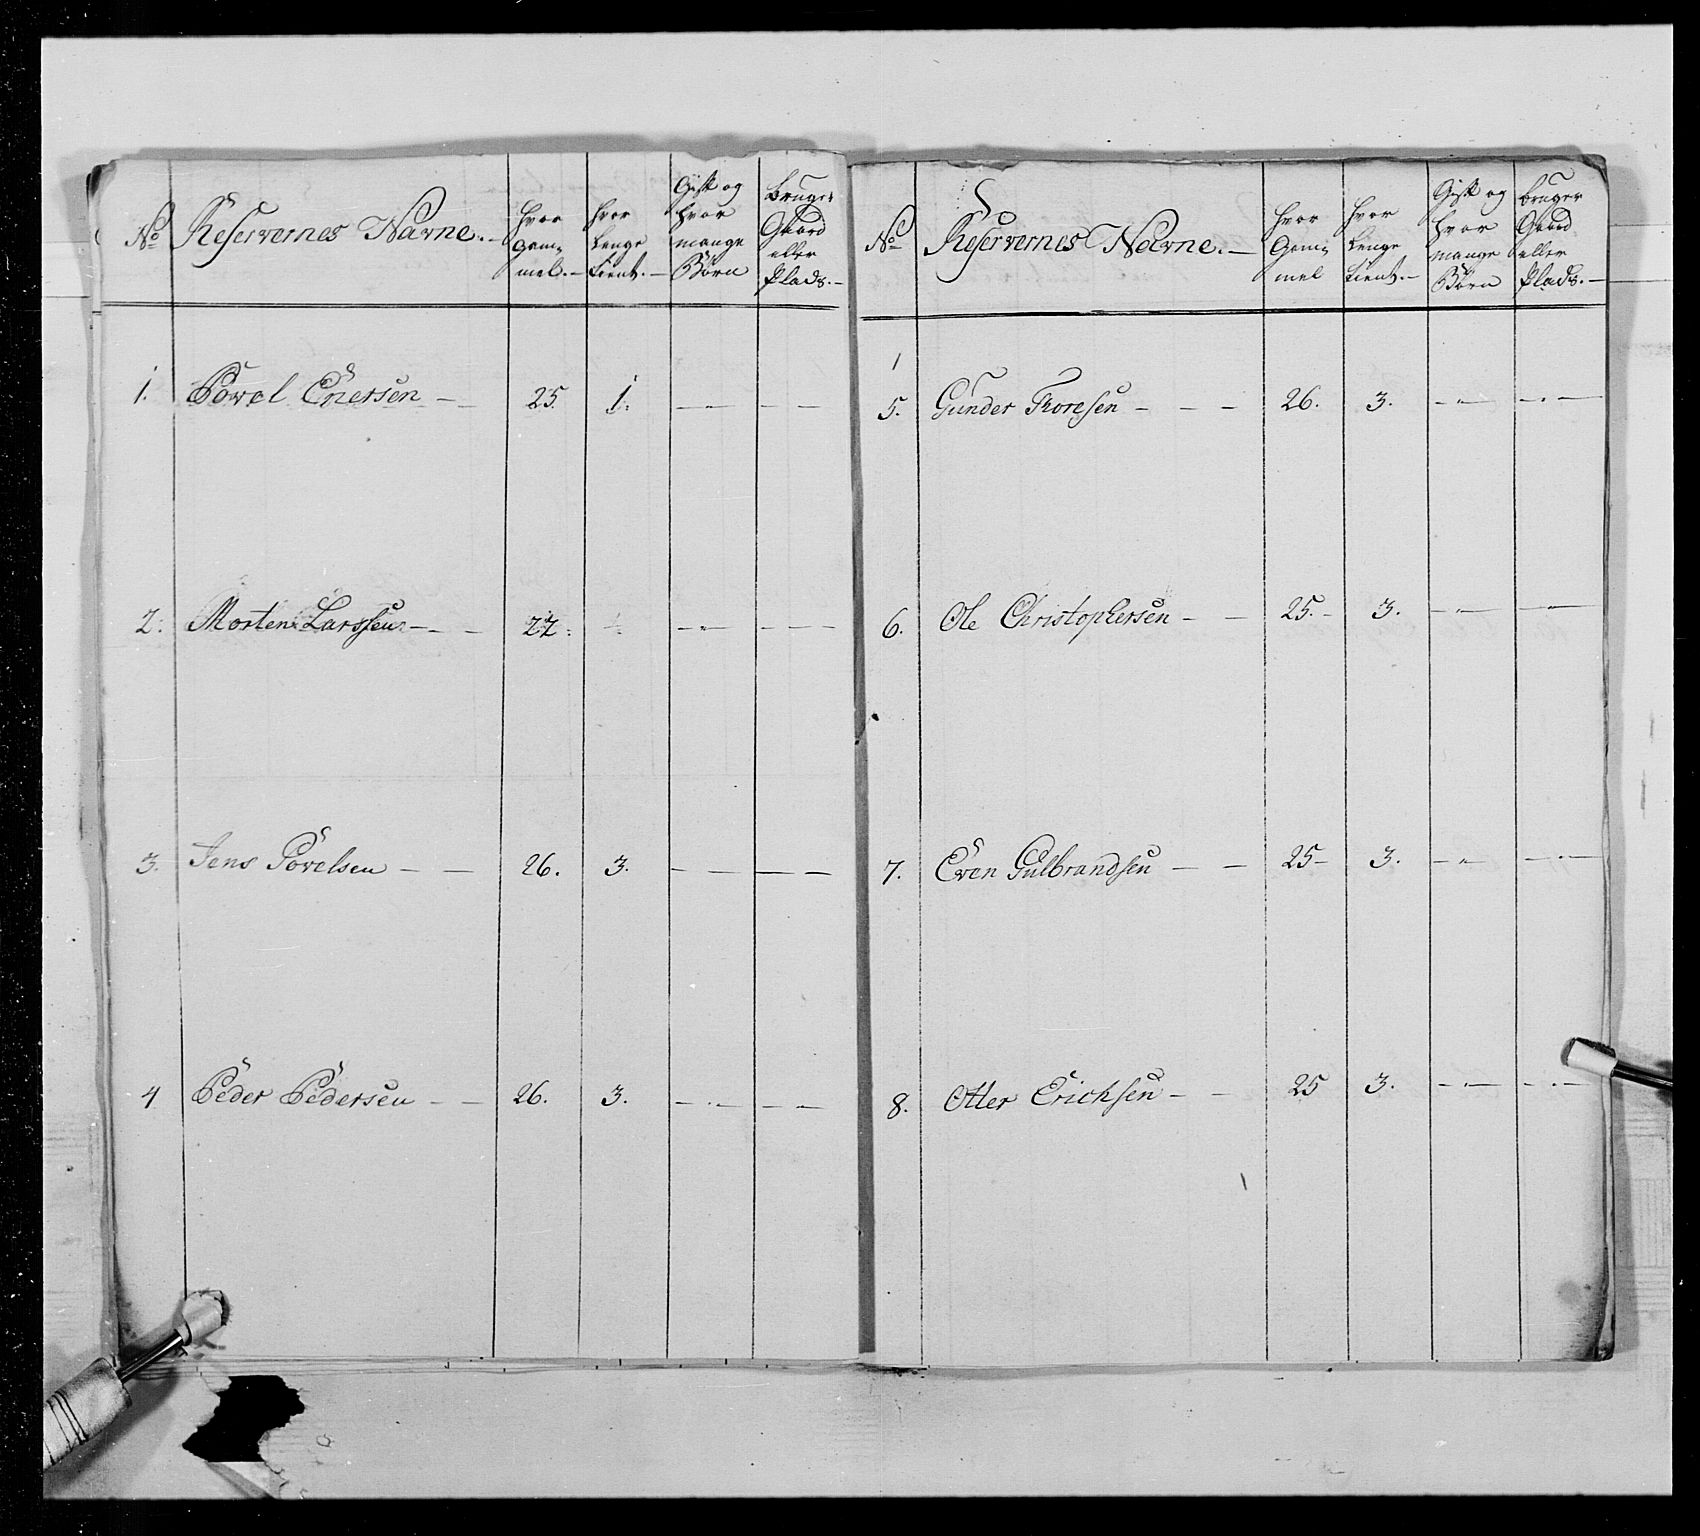 No Reservernes Navne. - hvor Gam= mel. - hvor Lenge tient. - Gift og hvor mange Börn Bruger Gaard eller Plads. -
1. Povel Enersen - - 25. 1. - " - - -
2. Morten Larssen - - 27. - " - - -
3. Jens Povelsen - - 26. 3. - - - -
4 Peder Pedersen - - 26. 3. - " - - -
No Reservernes Navne. - hvor Gam= mel hvor Lenge tient. - Gift og hvor mange Börn Bruger Gaard eller Plads. -
5. Gunder Thoresen - - - 26. 3. - " - - " -
6. Ole Christophersen - - 25. - 3. - " - - " -
7. Even Gulbrandsen - - 25 - 3. - " - - " -
8. Otter Erichsen - - 25 3. - " - - " -